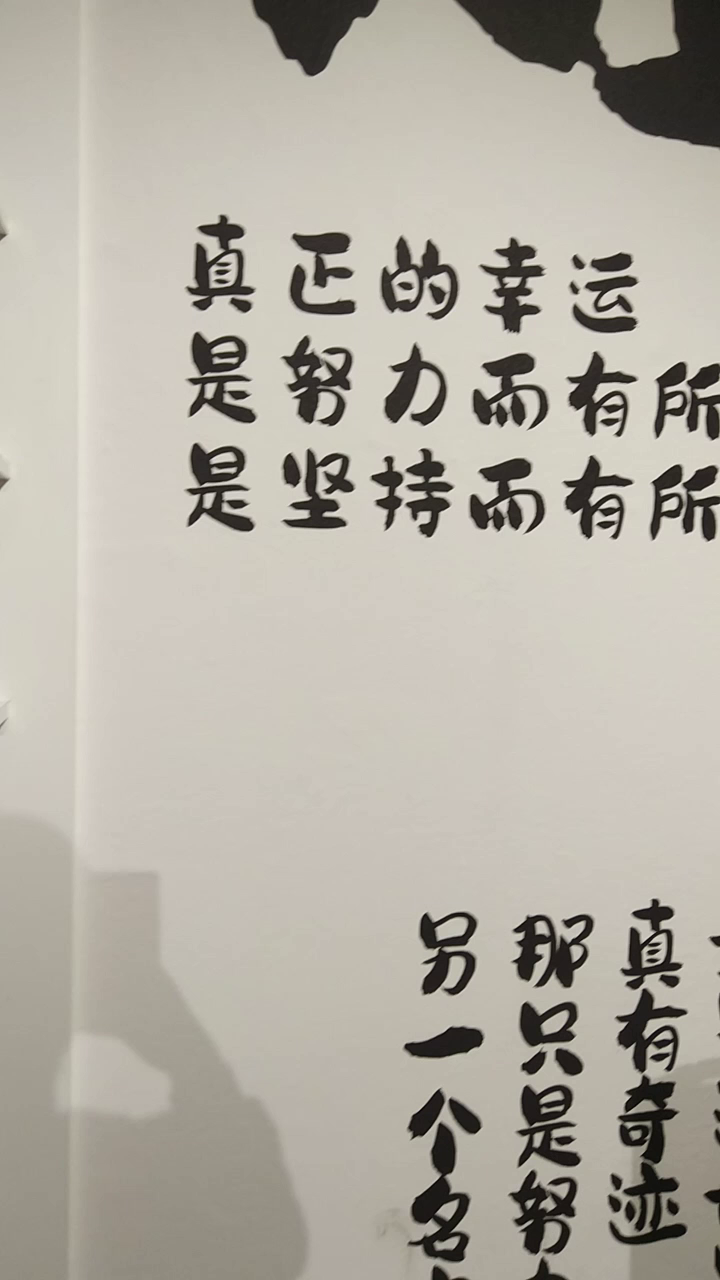 真正的幸运
是努力而有所
是坚持而有所
真有奇迹
那只是努
另一个名